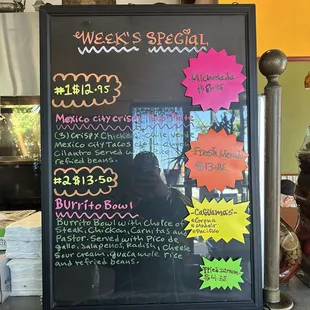 WEEK'S SPECIAL
#1 $12.95
Mexico city crisp
(3) Crispy Chicken
Mexico City Tacos
Cilantro Served
refried beans.
#2 $13.50
Burrito Bowl
Burrito Bowl with choice of
Steak, Chicken, Carnitas and
Pastor. Served with Pico de
gallo, Jalapenos, Radish, Cheese
Sour cream, guacamole rice
and refried beans.
Michelada
Fresta
Caguamas
Corona
Modelo
Pacifico